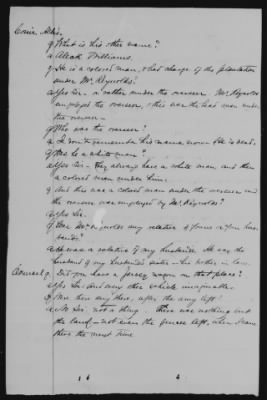 q What is his other name?
a Aleck Williams.
q He is a colored man, & had charge of the plantation
under Mr. Reynolds?
a Yes Sir - a rather under the overseer. Mr. Reynolds
employed the overseer, & this was the head man under
the overseer -
q Who was the overseer?
a I don't remember his name now & he is dead.
q Was he a white man?
a Yes Sir - they always have a white man, and then
a colored man under him.
q And this was a colored man under the overseer and
the overseer was employed by Mr. Reynolds?
a Yes Sir.
q Was Mr. Reynolds any relation of yours or your hus-
band's?
a He was a relative of my husband. He was the
husband of my husband's sister - his brother in law.
Counsel q. Did you have a Jersey wagon on that place?
a Yes Sir. And every other vehicle imaginable.
q Was there any there, after the army left?
a No Sir, not a thing. There was nothing but
the land - not even the fences left, when I came
there the next time